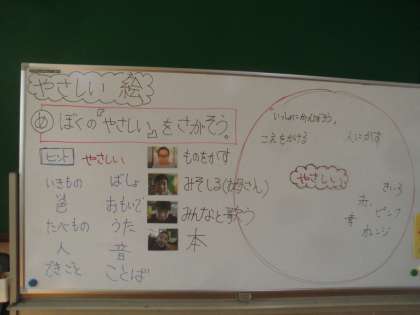 やさしい 絵
め ぼくの『やさしい』をさがそう。
ヒント やさしい
いきもの ばしょ
色 おもいで
たべもの うた
人 音
できごと ことば
ものをかす
みそしる(お母さん)
みんなと歌う
本
いっしょにかんがえる。
こえをかける 人にかす
やさしい
きいろ
赤 ピンク
青 オレンジ